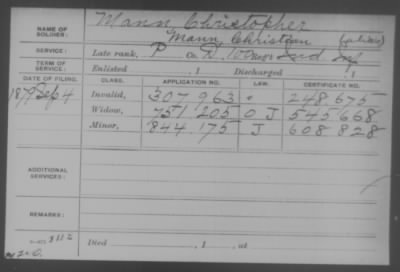 NAME OF SOLDIER: Mann Christopher
Mann Christian (alias)
SERVICE: Late rank, P Co. D, 100 Reg't Ind Inf
TERM OF SERVICE: Enlisted , 1 Discharged , 1
DATE OF FILING. CLASS. APPLICATION NO. LAW. CERTIFICATE NO.
1879 Sep 4 Invalid, 307 963 248 675
Widow, 751 205 O J 545 668
Minor, 844 175 J 608 828
ADDITIONAL SERVICES:
REMARKS:
Died , 1 , at